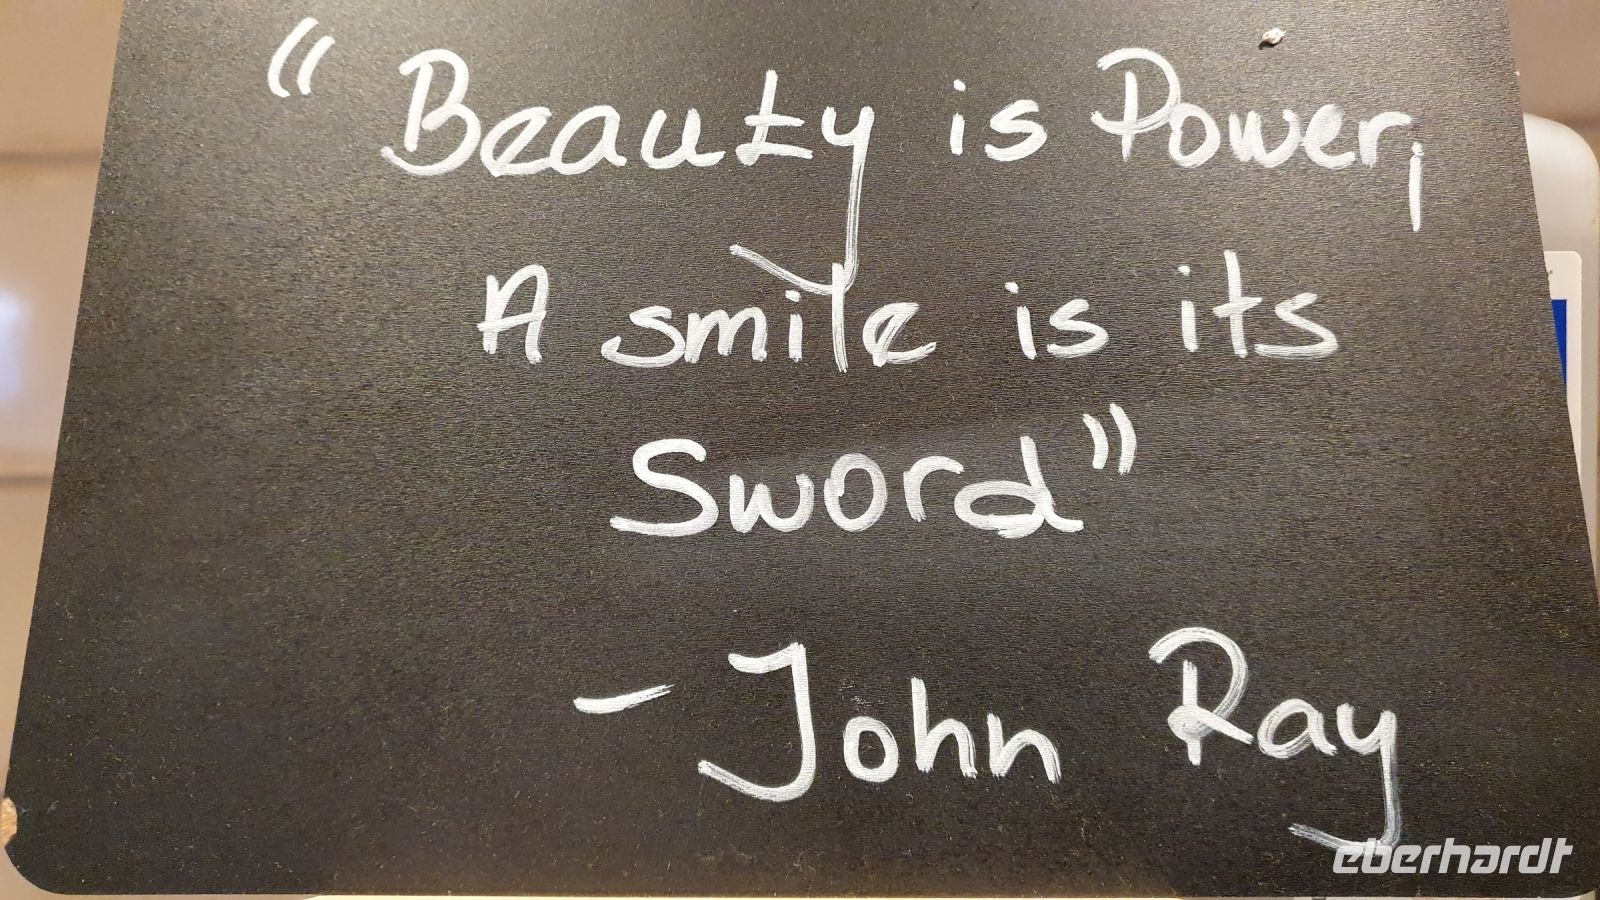 "Beauty is Power,
A smile is its
Sword"
- John Ray
eberhardt